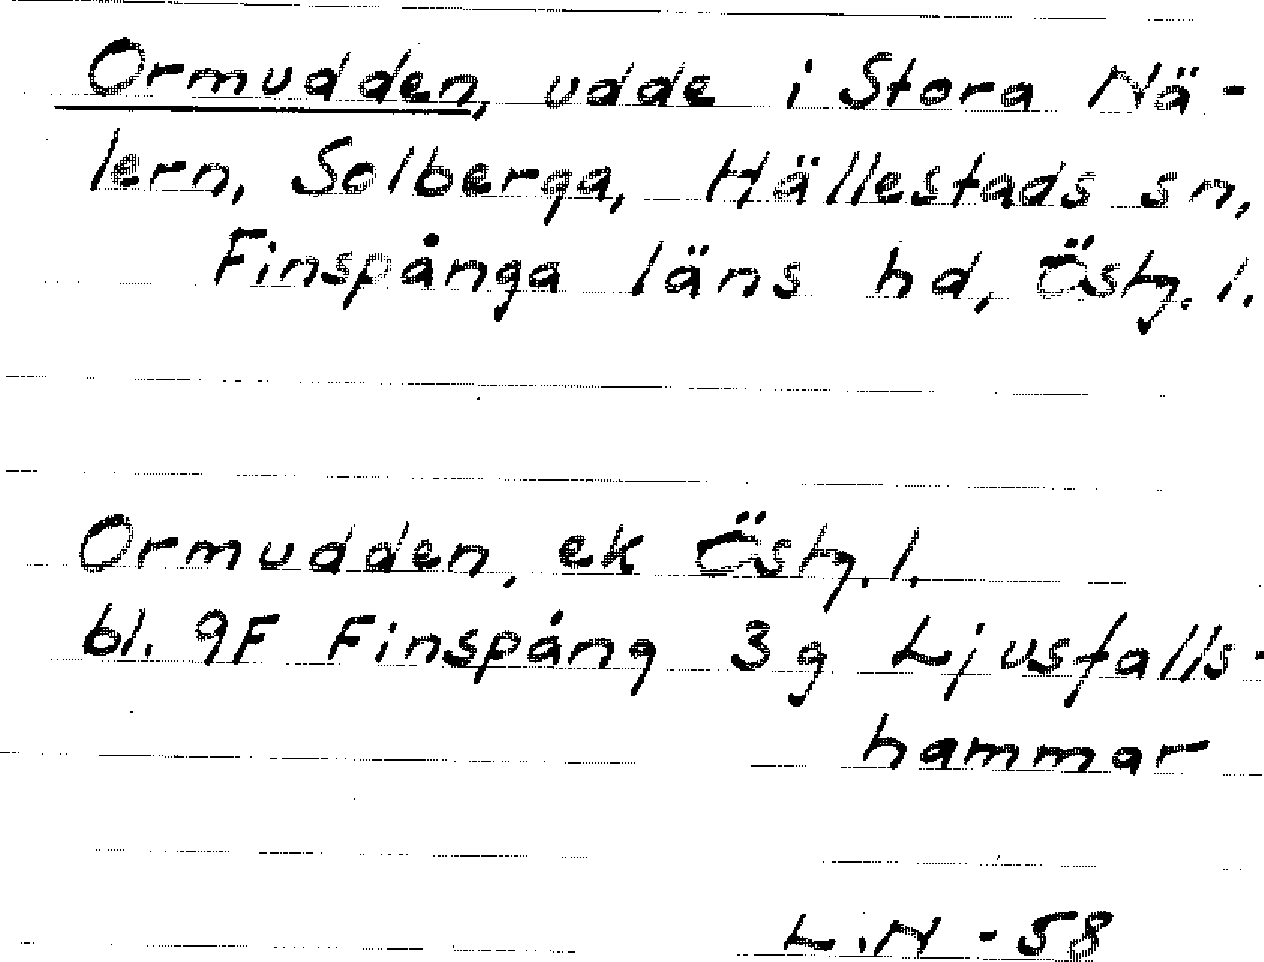 Ormudden, udde i Stora Nä-
lern, Solberga, Hällestads sn,
Finspånga läns hd, Östg. l.
Ormudden, ek Östg. l.
bl. 9F Finspång 3g Ljusfalls-
hammar
L.N - 58